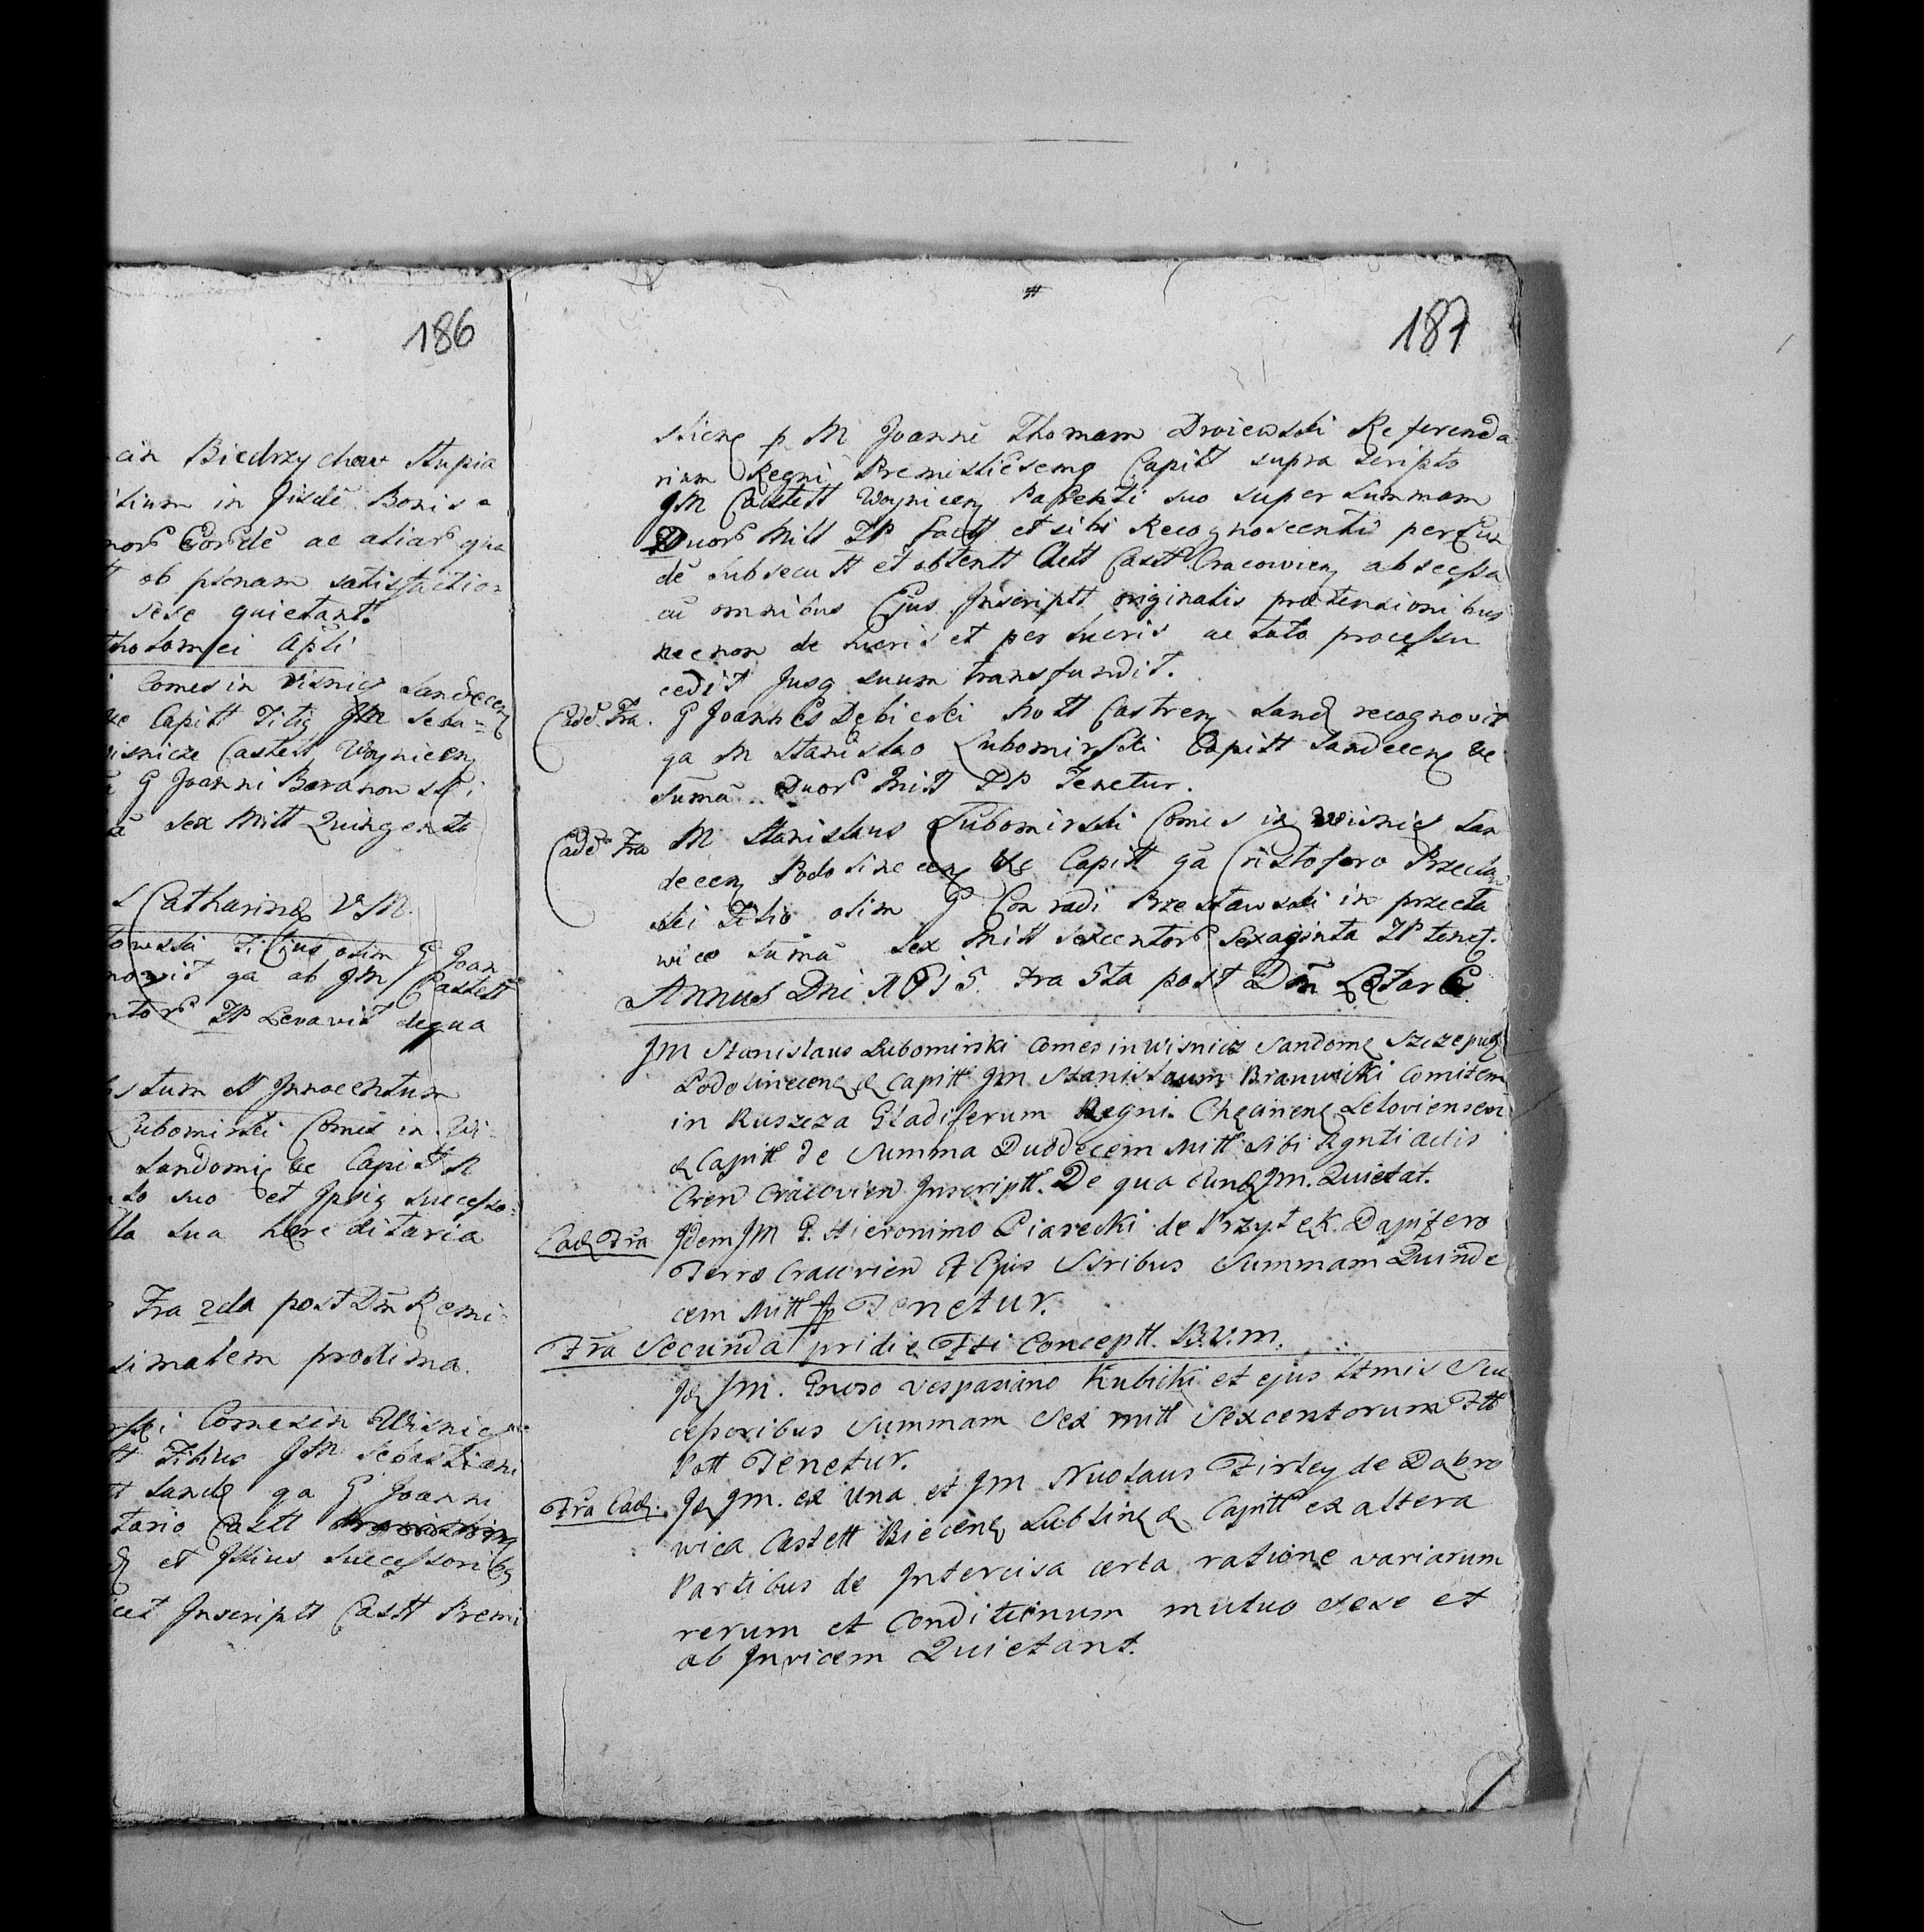 186
cin Biedrzychow Stupia
itium in Jisde Bonis
nor Eorde ac aliar qua
ob plenam satisfactio
sese quietant.
tholomei Apli
Comes in Visnicz Sandecen
Capitt Filig JM Seba
isnicze Castett Woynicen
G Joanni Baranowski
Sex Mitt Quingento
S Catharine V M.
towski Filius olim G Joan
novit qa ab JM Castett
ntor FP Levavit de qua
stum SS Innocentum
Lubomirski Comes in Wi
Sandomi &c Capitt
to suo et Ipsiq Successo
lla sua hereditaria
Fra 2da post Dm Remi
simalem proxima.
rski Comes in Wisnicz
tt Filius JM Sebastiani
tt Sand qa G Joanni
tario Castt
et Illius Successorib
cet Inscriptt Castt Premi
187
slien p M Joanne Thomam Droiewski Referenda
rium Regni Premisliesemq Capitt supra scripto
JM Castett Woynicen Parenti suo super Summam
Duor Mill FP factt et sibi Recognoscenti per Eun
de Subsecutt et obtentt Actt Castt Cracovien ab scessa
cu omnibus Ejus Inscriptt originalis praetensionibus
necnon de lucris et per lucris ac toto processu
cedit Jusq suum transfundit.
Ead. Fra. G Joannes Dębicski Nott Castren Sand recognovit
qa M Stanislao Lubomirski Capitt Sandecen &c
suma Duor Mitt FP Tenetur.
Eade Fra M Stanislaus Lubomirski Comes in Wisnicz San
decen Podolinecen &c Capitt qa Cristofero Przecław
ski Filio olim G Conradi Przecławski in przecła
wice suma Sex Mitt Sexcentor Sexaginta FP tenet.
Annus Dni 1615. Fra 5ta post Dm Lętare
JM Stanislaus Lubomirski Comes in Wisnicz Sandom Szczepug
Podolinecen & Capitt JM Stanislaum Branwicki Comitem
in Ruszcza Gladiferum Regni. Chęcinen Leloviensen
& Capitt de Summa Duodecem Mitt Sibi Rgnti actis
Cren Cracovien Inscriptt. De qua eund JM. Quietat.
Ead Fra Idem JM G. Hieronimo Piarecki de Przytek Dapifero
Terrae Cracovien & Ejus Ssribus Summam Quinde
cem Mitt fp Tenetur.
Fra Secunda pridie Fti Conceptt. B.V.M.
Id JM. Gnoso Vespasiano Kubicki et ejus ltmis Suc
cessoribus Summam Sex mitt Sexcentorum Ftt
Pott Tenetur.
Fra Ead. Id JM. ex una et JM Nicolaus Firley de Dabro
wica Castett Biecen Lublin & Capitt ex altera
Partibus de Intercisa certa ratione variarum
rerum et Conditionum mutuo sese et
ab Invicem Quietant.